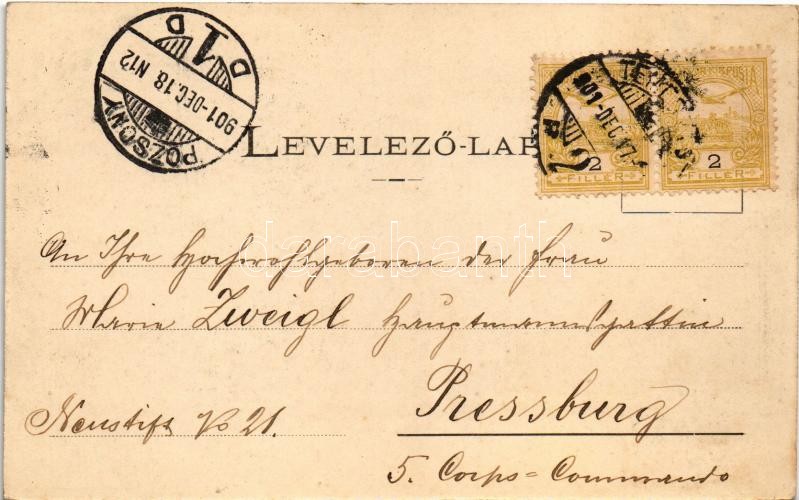 POZSONY
901-DEC.18. N12
D 1 D
LEVELEZŐ-LAP
901-DEC.17.
2
FILLÉR
2
FILLÉR
darabanth
An Ihre Hochwohlgeboren der Frau
Marie Zweigl Hauptmannsgattin
Pressburg
Neustift No 21.
5. Corps=Commando